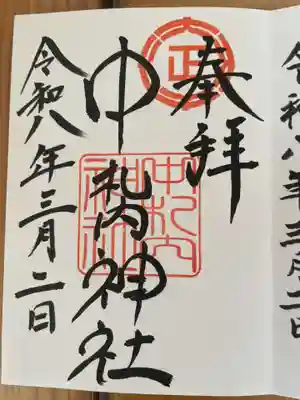 奉拝
中札内神社
令和八年三月二日
正
中札内
神社
令和八年三月二日